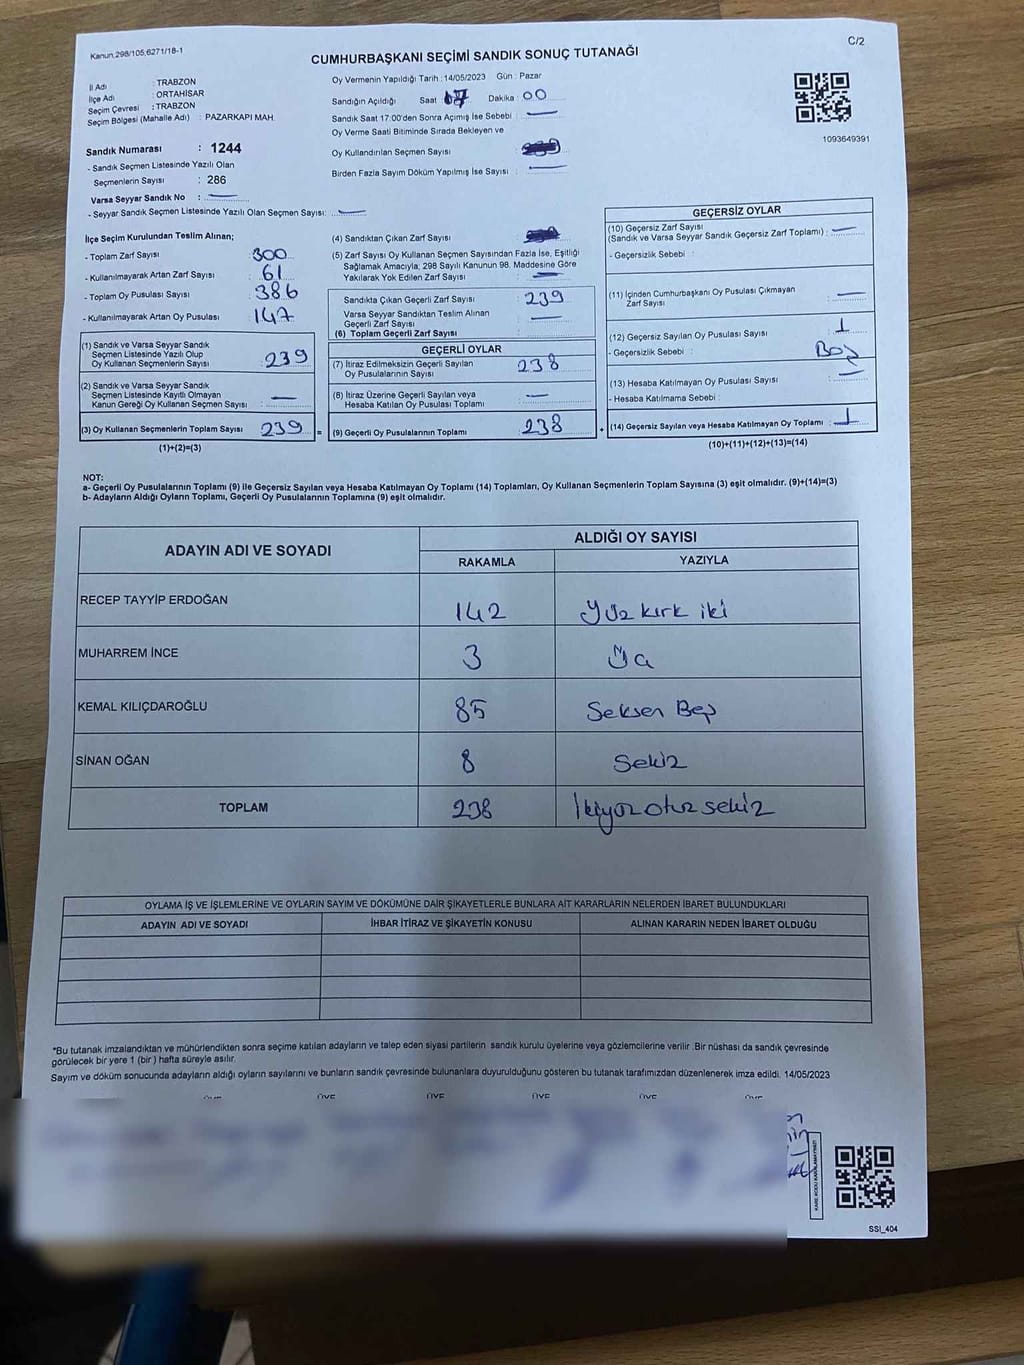 Kanun:298/105,6271/18-1
C/2
CUMHURBAŞKANI SEÇİMİ SANDIK SONUÇ TUTANAĞI
İl Adı : TRABZON
İlçe Adı : ORTAHİSAR
Seçim Çevresi : TRABZON
Seçim Bölgesi (Mahalle Adı) : PAZARKAPI MAH.
Sandık Numarası : 1244
- Sandık Seçmen Listesinde Yazılı Olan
Seçmenlerin Sayısı : 286
Varsa Seyyar Sandık No : —
- Seyyar Sandık Seçmen Listesinde Yazılı Olan Seçmen Sayısı: —
Oy Vermenin Yapıldığı Tarih : 14/05/2023 Gün : Pazar
Sandığın Açıldığı Saat 17 Dakika : 00
Sandık Saat 17:00'den Sonra Açımış İse Sebebi : —
Oy Verme Saati Bitiminde Sırada Bekleyen ve
Oy Kullandırılan Seçmen Sayısı :
Birden Fazla Sayım Döküm Yapılmış İse Sayısı : —
1093649391
İlçe Seçim Kurulundan Teslim Alınan;
- Toplam Zarf Sayısı : 300
- Kullanılmayarak Artan Zarf Sayısı : 61
- Toplam Oy Pusulası Sayısı : 386
- Kullanılmayarak Artan Oy Pusulası : 147
(1) Sandık ve Varsa Seyyar Sandık
Seçmen Listesinde Yazılı Olup
Oy Kullanan Seçmenlerin Sayısı : 239
(2) Sandık ve Varsa Seyyar Sandık
Seçmen Listesinde Kayıtlı Olmayan
Kanun Gereği Oy Kullanan Seçmen Sayısı : —
(3) Oy Kullanan Seçmenlerin Toplam Sayısı : 239 =
(1)+(2)=(3)
(4) Sandıktan Çıkan Zarf Sayısı :
(5) Zarf Sayısı Oy Kullanan Seçmen Sayısından Fazla İse, Eşitliği
Sağlamak Amacıyla; 298 Sayılı Kanunun 98. Maddesine Göre
Yakılarak Yok Edilen Zarf Sayısı : —
Sandıkta Çıkan Geçerli Zarf Sayısı : 239
Varsa Seyyar Sandıktan Teslim Alınan
Geçerli Zarf Sayısı : —
(6) Toplam Geçerli Zarf Sayısı
GEÇERLİ OYLAR
(7) İtiraz Edilmeksizin Geçerli Sayılan
Oy Pusulalarının Sayısı : 238
(8) İtiraz Üzerine Geçerli Sayılan veya
Hesaba Katılan Oy Pusulası Toplamı : —
(9) Geçerli Oy Pusulalarının Toplamı : 238 +
GEÇERSİZ OYLAR
(10) Geçersiz Zarf Sayısı
(Sandık ve Varsa Seyyar Sandık Geçersiz Zarf Toplamı) : —
- Geçersizlik Sebebi :
(11) İçinden Cumhurbaşkanı Oy Pusulası Çıkmayan
Zarf Sayısı : —
(12) Geçersiz Sayılan Oy Pusulası Sayısı : 1
- Geçersizlik Sebebi : Boş
(13) Hesaba Katılmayan Oy Pusulası Sayısı : —
- Hesaba Katılmama Sebebi :
(14) Geçersiz Sayılan veya Hesaba Katılmayan Oy Toplamı : 1
(10)+(11)+(12)+(13)=(14)
NOT:
a- Geçerli Oy Pusulalarının Toplamı (9) ile Geçersiz Sayılan veya Hesaba Katılmayan Oy Toplamı (14) Toplamları, Oy Kullanan Seçmenlerin Toplam Sayısına (3) eşit olmalıdır. (9)+(14)=(3)
b- Adayların Aldığı Oyların Toplamı, Geçerli Oy Pusulalarının Toplamına (9) eşit olmalıdır.
ADAYIN ADI VE SOYADI ALDIĞI OY SAYISI
RAKAMLA YAZIYLA
RECEP TAYYİP ERDOĞAN 142 Yüz kırk iki
MUHARREM İNCE 3 Üç
KEMAL KILIÇDAROĞLU 85 Seksen Beş
SİNAN OĞAN 8 Sekiz
TOPLAM 238 İkiyüzotuzsekiz
OYLAMA İŞ VE İŞLEMLERİNE VE OYLARIN SAYIM VE DÖKÜMÜNE DAİR ŞİKAYETLERLE BUNLARA AİT KARARLARIN NELERDEN İBARET BULUNDUKLARI
ADAYIN ADI VE SOYADI İHBAR İTİRAZ VE ŞİKAYETİN KONUSU ALINAN KARARIN NEDEN İBARET OLDUĞU
*Bu tutanak imzalandıktan ve mühürlendikten sonra seçime katılan adayların ve talep eden siyasi partilerin sandık kurulu üyelerine veya gözlemcilerine verilir .Bir nüshası da sandık çevresinde
görülecek bir yere 1 (bir ) hafta süreyle asılır.
Sayım ve döküm sonucunda adayların aldığı oyların sayılarını ve bunların sandık çevresinde bulunanlara duyurulduğunu gösteren bu tutanak tarafımızdan düzenlenerek imza edildi. 14/05/2023
ÜYE ÜYE ÜYE ÜYE ÜYE ÜYE
KARE KODU KARALAMAYINIZ!
SSI_404